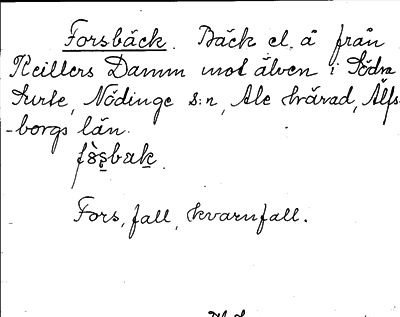 Forsbäck. Bäck el. å från
Keillers Damm mot älven i Södra
Surte, Nödinge s:n, Ale härad, Älfs
-borgs län.
Fors, fall, kvarnfall.